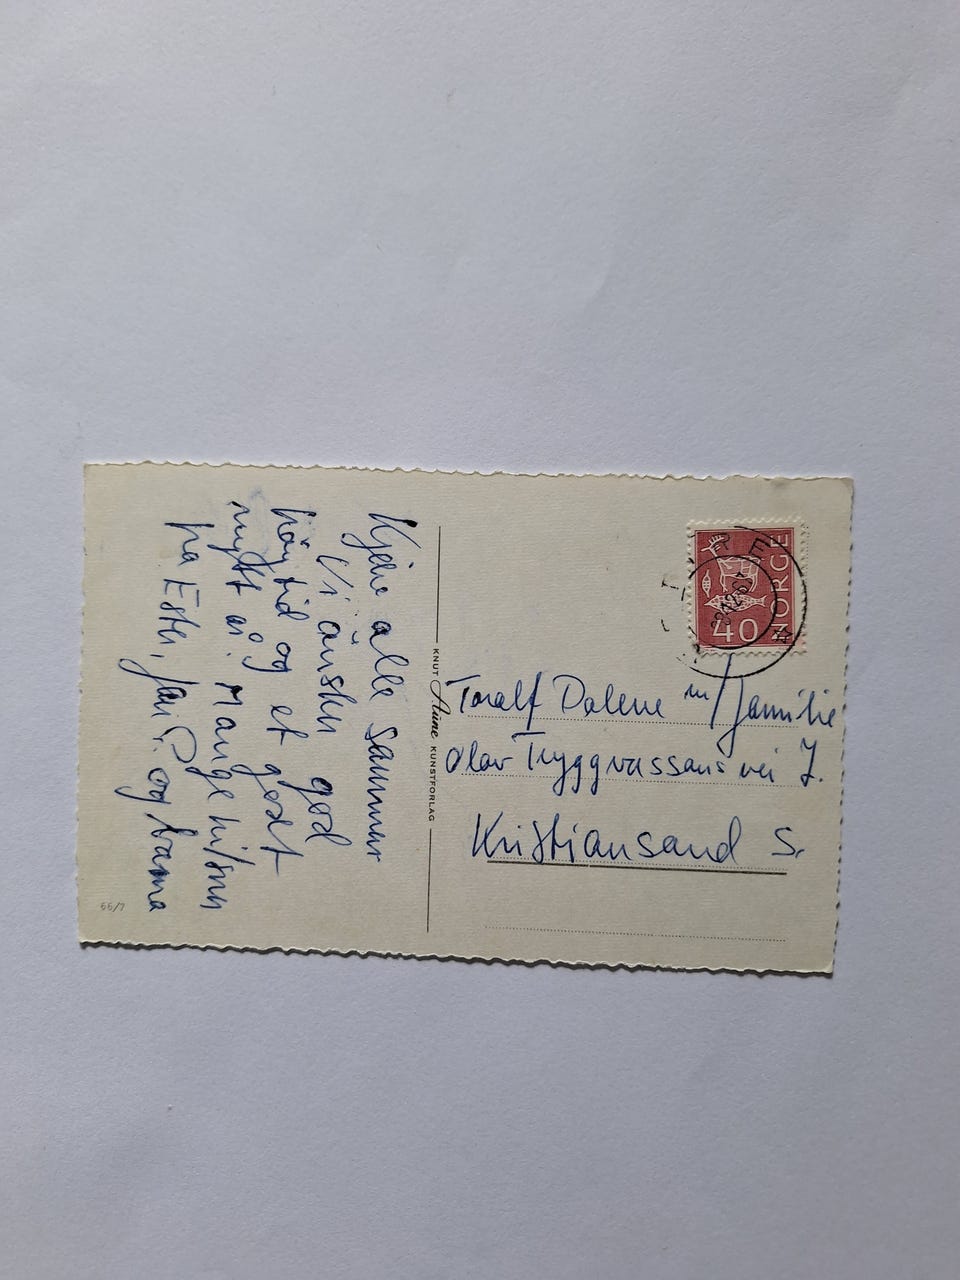 Kjære alle sammen
Vi ønsker god
høytid og et godt
nytt år. Mange hilsen
fra Ester, Jan P. og barna
55/7
KNUT Aune KUNSTFORLAG
NORGE
40
Toralf Dalene m/familie
Olav Tryggvassøns vei 7.
Kristiansand S.